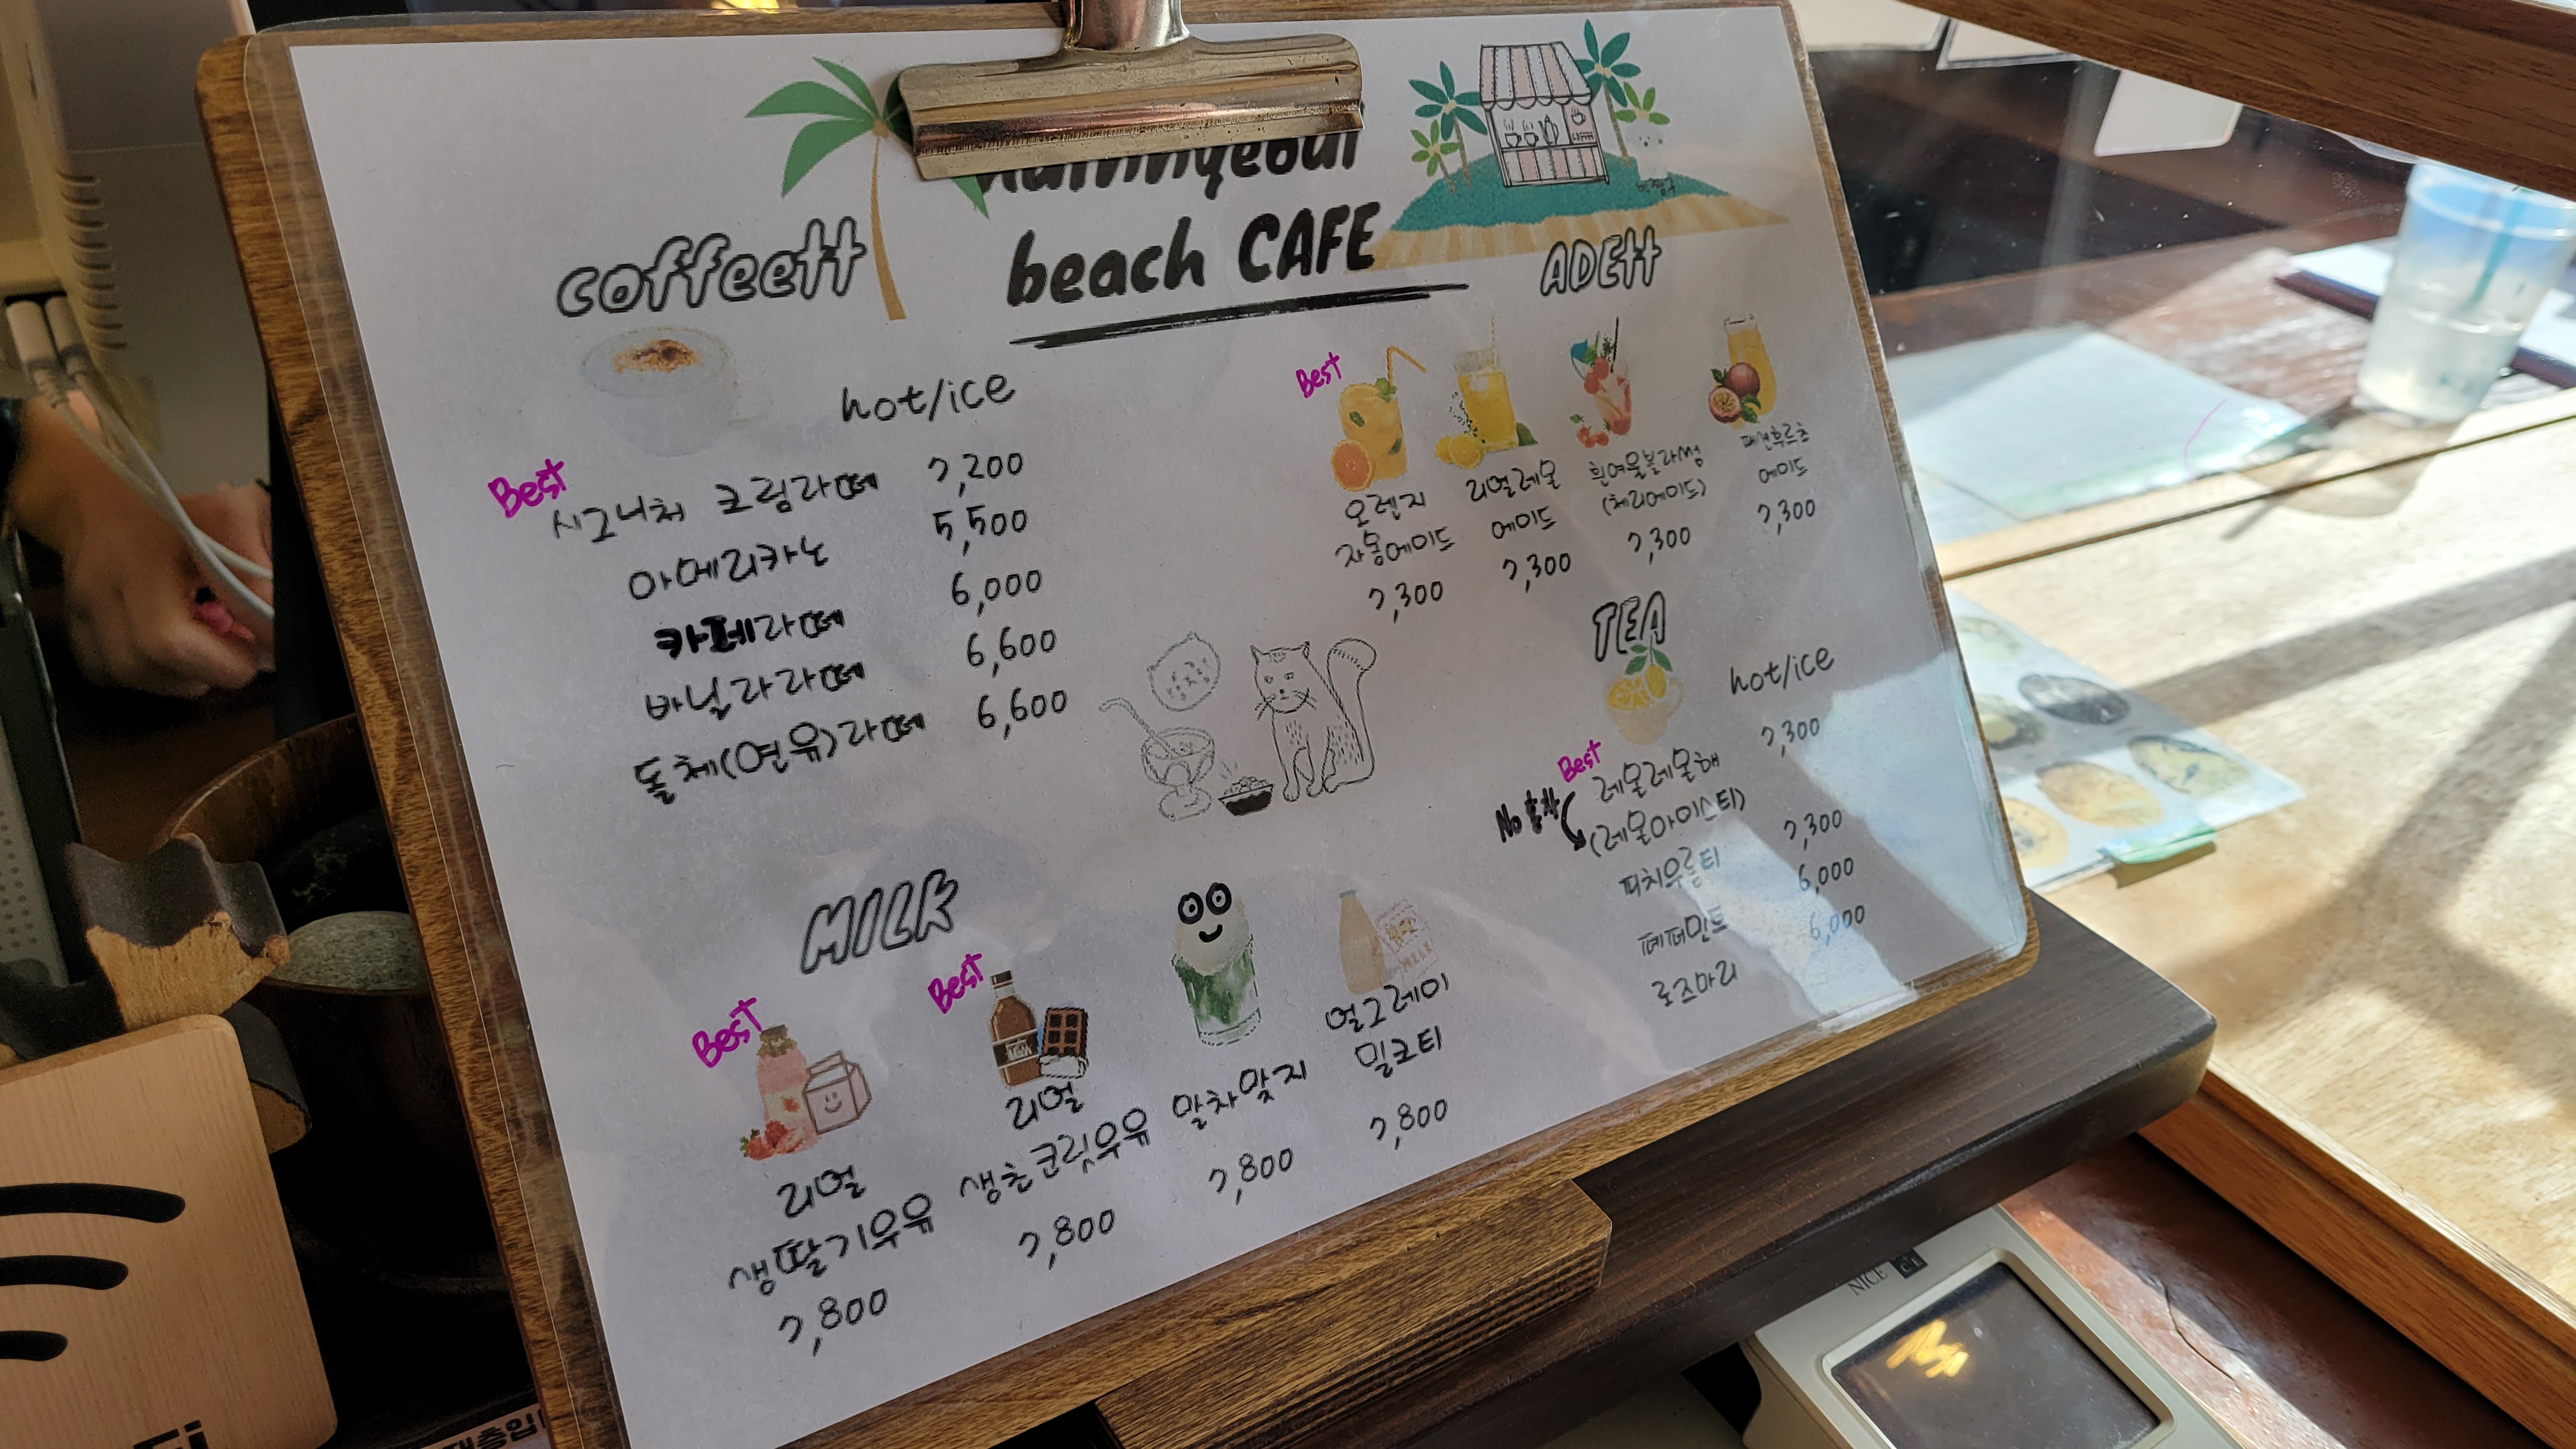 beach CAFE
coffee
hot/ice
Best
시그니처 크림라떼 7,200
아메리카노 5,500
카페라떼 6,000
바닐라라떼 6,600
돌체(연유)라떼 6,600
ADE
Best
오렌지
자몽에이드
7,300
리얼레몬
에이드
7,300
흰여울블라썸
(체리에이드)
7,300
패션후르츠
에이드
7,300
TEA
hot/ice
Best
레몰레몰해 7,300
No 홍차
(레몬아이스티)
피치우롱티 7,300
페퍼민트 6,000
로즈마리 6,000
MILK
Best
리얼
생딸기우유
7,800
Best
리얼
생초코릿우유
7,800
말차맟지
7,800
얼그레이
밀크티
7,800
NICE